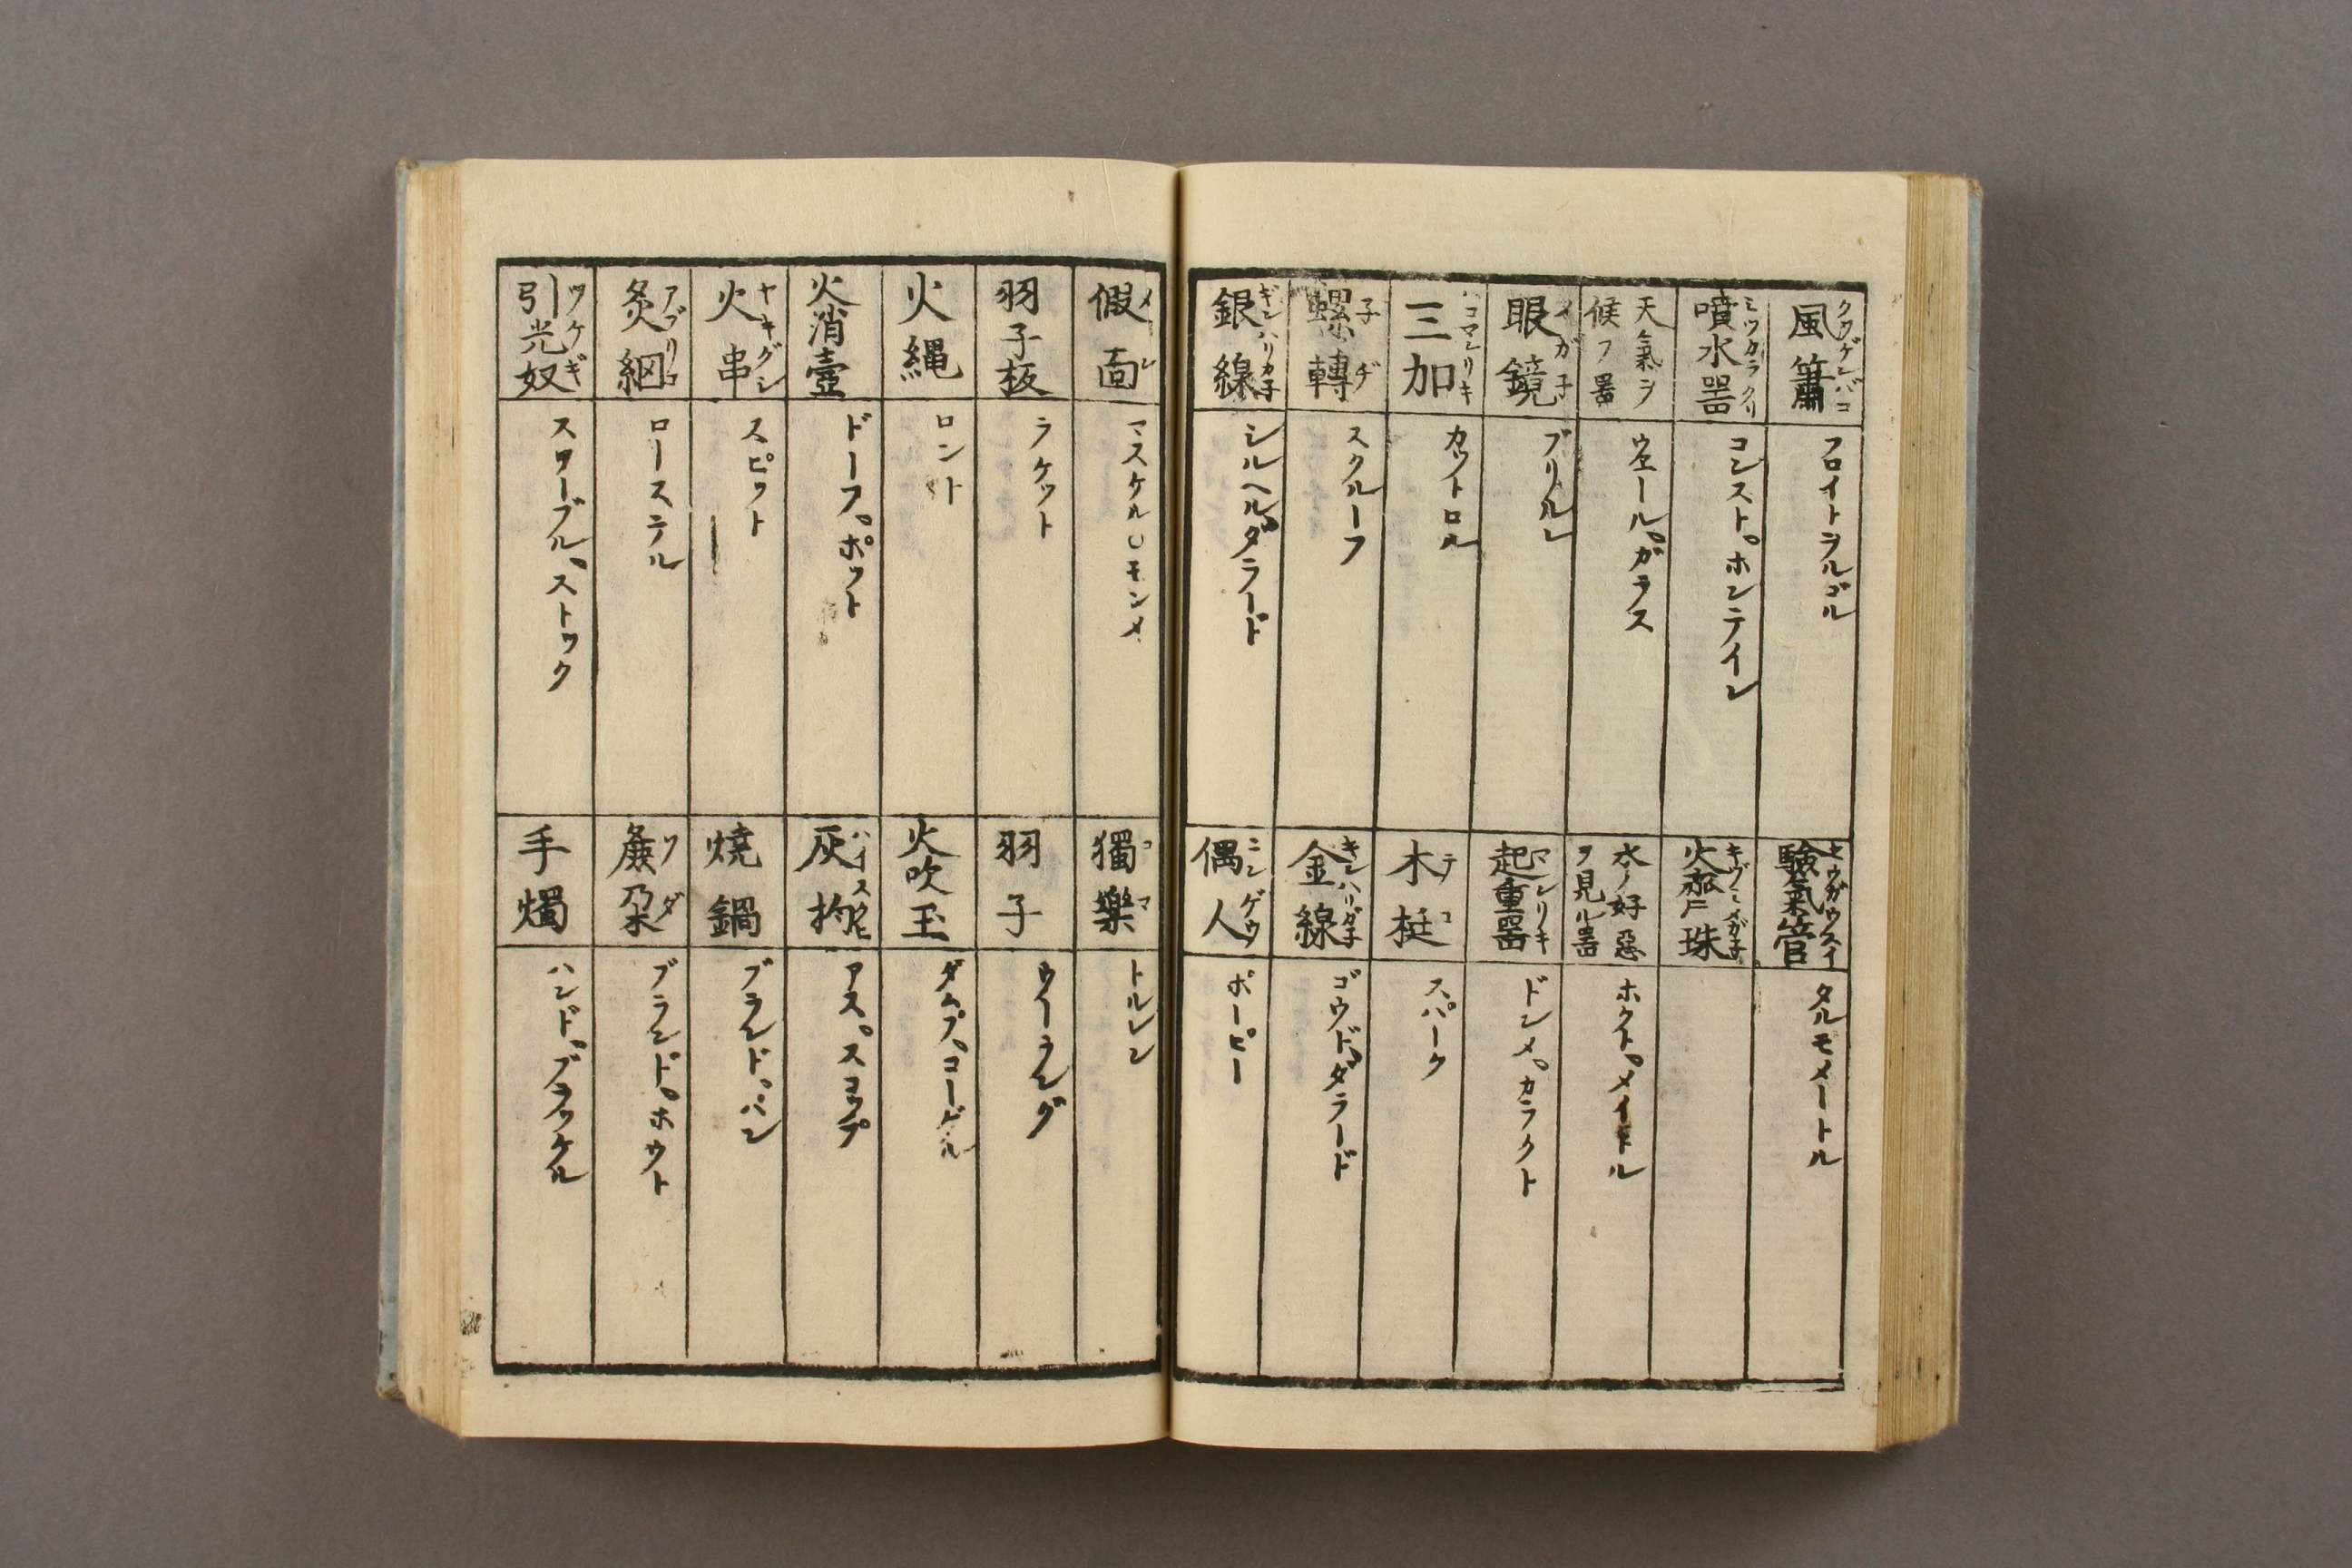 風簫 クワゲンバコ
フロイトヲルゴル
驗氣管
タルモメートル
噴水噐 ミヅカラクリ
コンスト。ホンテイン
火齊珠
天氣ヲ候フ噐
ウエールガラス
水ノ好惡ヲ見ル噐
ホクト。メイトル
眼鏡
ブリルレ
起重噐 マンリキ
ドンメ。カラクト
三加 ハコマンリキ
カットロル
木梃 テコ
スパーク
螺轉 子ヂ
スクルーフ
金線
ゴウド。ダラード
銀線 ギンハリカ子
シルヘル。ダラード
偶人 ニンゲウ
ポーピー
假面 メン
マスケル〇モンメ
獨樂 コマ
トルレン
羽子板
ラケット
羽子
ウーランダ
火縄
ロント
火吹玉
ダムプ。コーゲル
火消壷
ドーフ。ポット
灰抅 ハイスクヒ
アス。スコップ
火串 ヤキグシ
スピット
焼鍋
ブランド。パン
炙網 アブリコ
ローステル
ワダ
ブランド。ホウト
引光奴 ツケギ
スワーブル。ストック
手燭
ハンド。ブラッケル